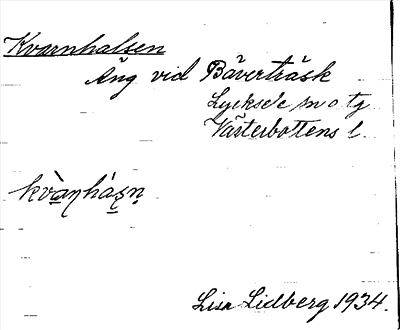 Kvarnhalsen
Äng vid Bäverträsk
Lycksele sn o tg
Västerbottens l.
kvàṇháṣṇ
Lisa Lidberg 1934.